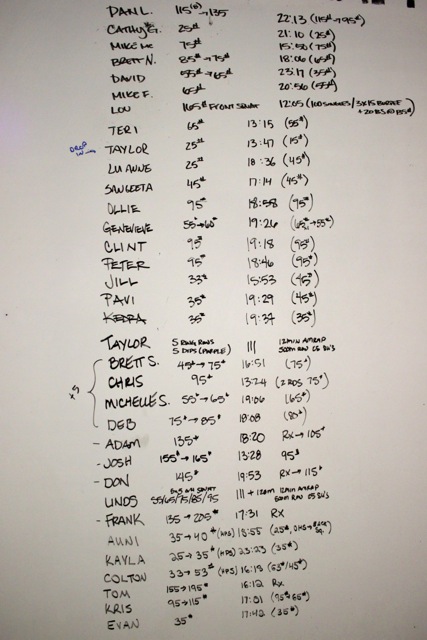 DAN L. 115(#)→135 22:13 (115#→95#)
CATHY G. 25# 21:10 (25#)
MIKE Mc 75# 15:50 (75#)
BRETT N. 85#→75# 18:06 (65#)
DAVID 55#→65# 23:17 (35#)
MIKE F. 65# 20:56 (55#)
LOU 165# FRONT SQUAT 12:05 (100 SINGLES / 3X15 BURPEE
TERI 65# 13:15 (55#)
DROP IN → TAYLOR 25# 13:47 (15#)
LUANNE 25# 18:36 (45#)
SANGEETA 45# 17:14 (45#)
OLLIE 95# 18:58 (95#)
GENEVIEVE 55→60# 19:26 (65#→55#)
CLINT 95# 19:18 (95#)
PETER 95# 18:46 (95#)
JILL 33# 15:53 (45#)
PAVI 35# 19:29 (45#)
35# 19:37 (35#)
TAYLOR 5 RING ROWS ||| 12 MIN AMRAP
5 DIPS (PURPLE) 500M ROW
x5 BRETT S. 45#→75# 16:51 (75#)
CHRIS 95# 13:24 (2 RDS 75#)
MICHELLE S. 55#→65# 19:06 (65#)
DEB 75#→85# 18:08 (80#)
- ADAM 135# 18:20 RX→105#
- JOSH 155#→165# 13:28 95#
- DON 145# 19:53 RX→115#
LINDS 55/65/75/85/95 ||| + 12 MIN AMRAP
- FRANK 135→205# 17:31 RX
AUNI 35→40# (KPS) 18:55 (25#, OHS→BACK SQ.
KAYLA 25→35# (KPS) 23:23 (35#)
COLTON 33→53# (KPS) 16:13 (55#/45#)
TOM 155→195# 16:12 RX
KRIS 95→115# 17:01 (95#65#)
EVAN 35# 17:42 (35#)